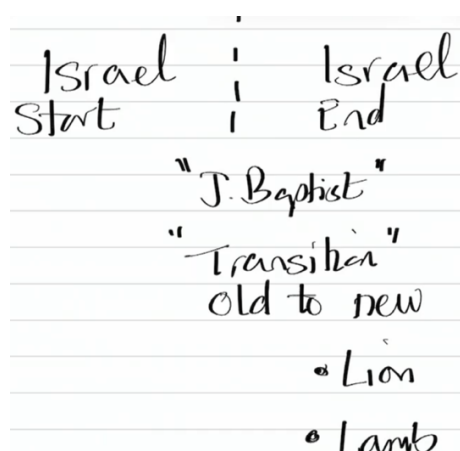 Israel Israel
Start End
"J. Baptist"
"Transition"
old to new
• Lion
• Lamb